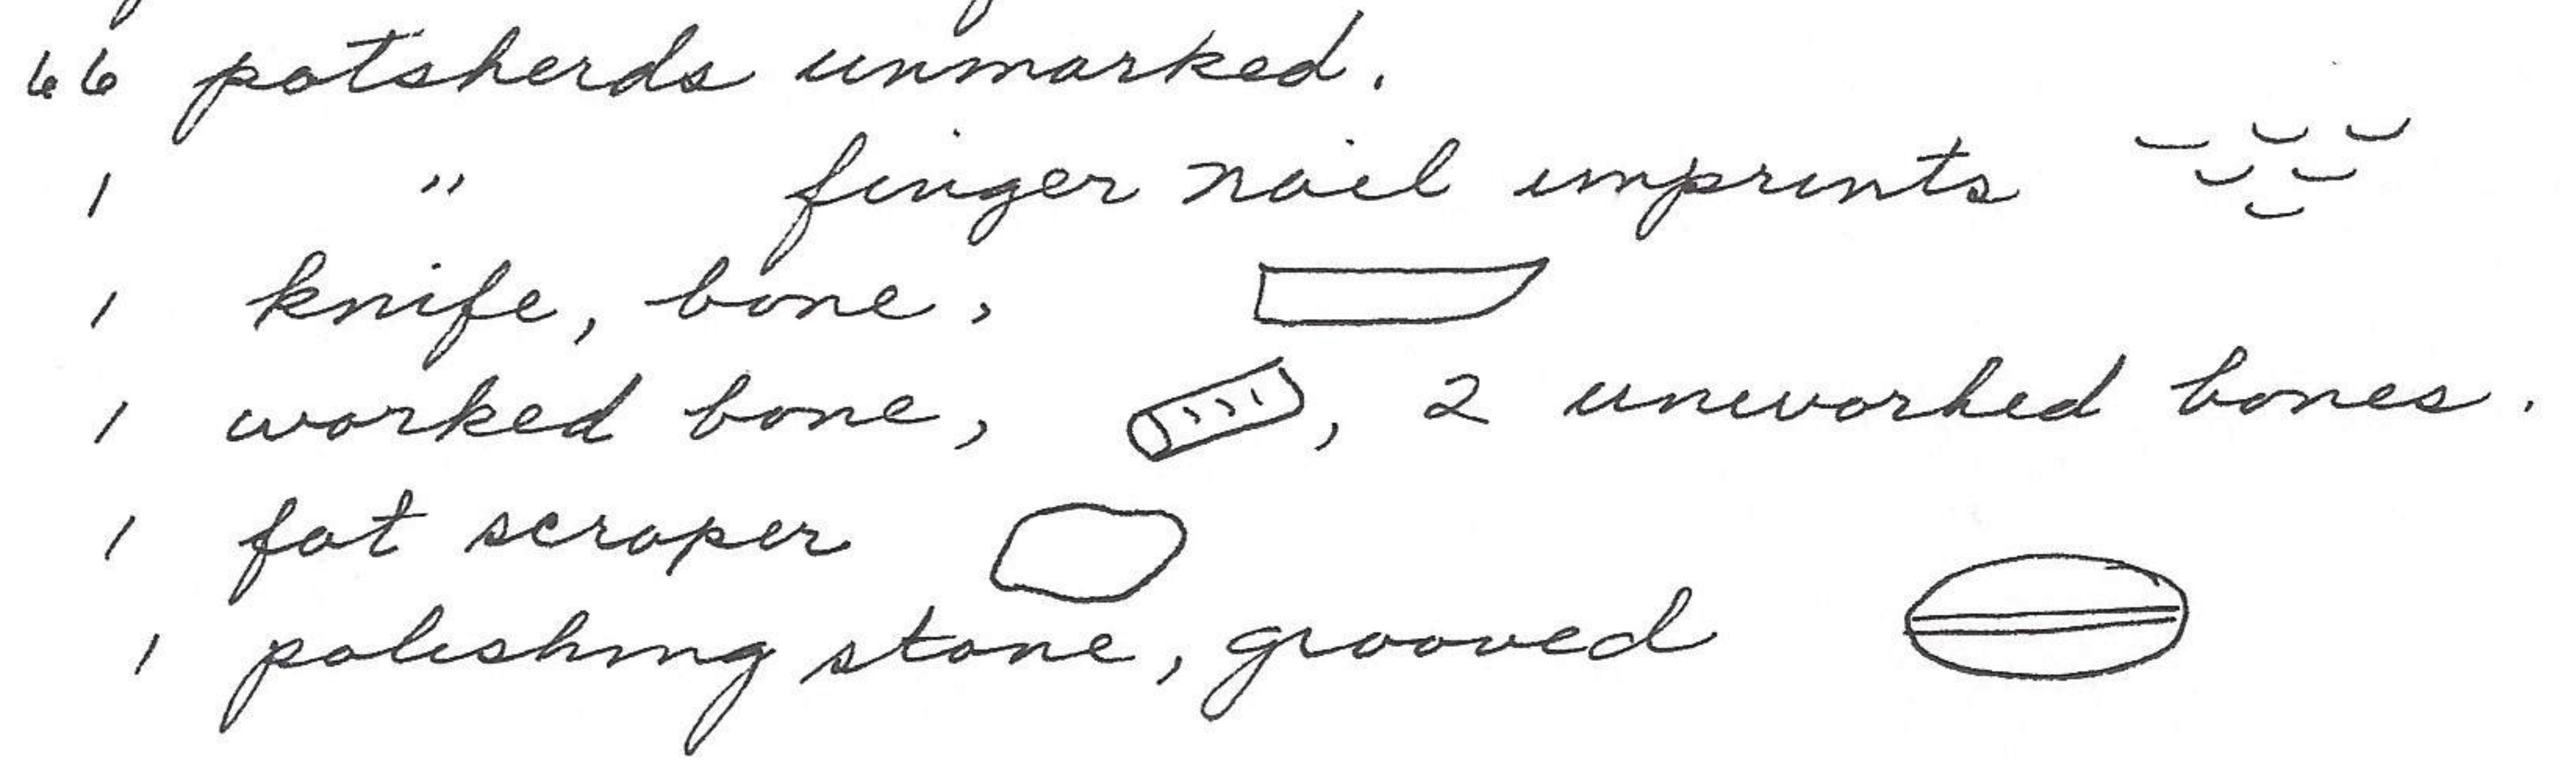 66 potsherds unmarked.
1 " finger nail imprints
1 knife, bone,
1 worked bone, , 2 unworked bones.
1 fat scraper
1 polishing stone, grooved